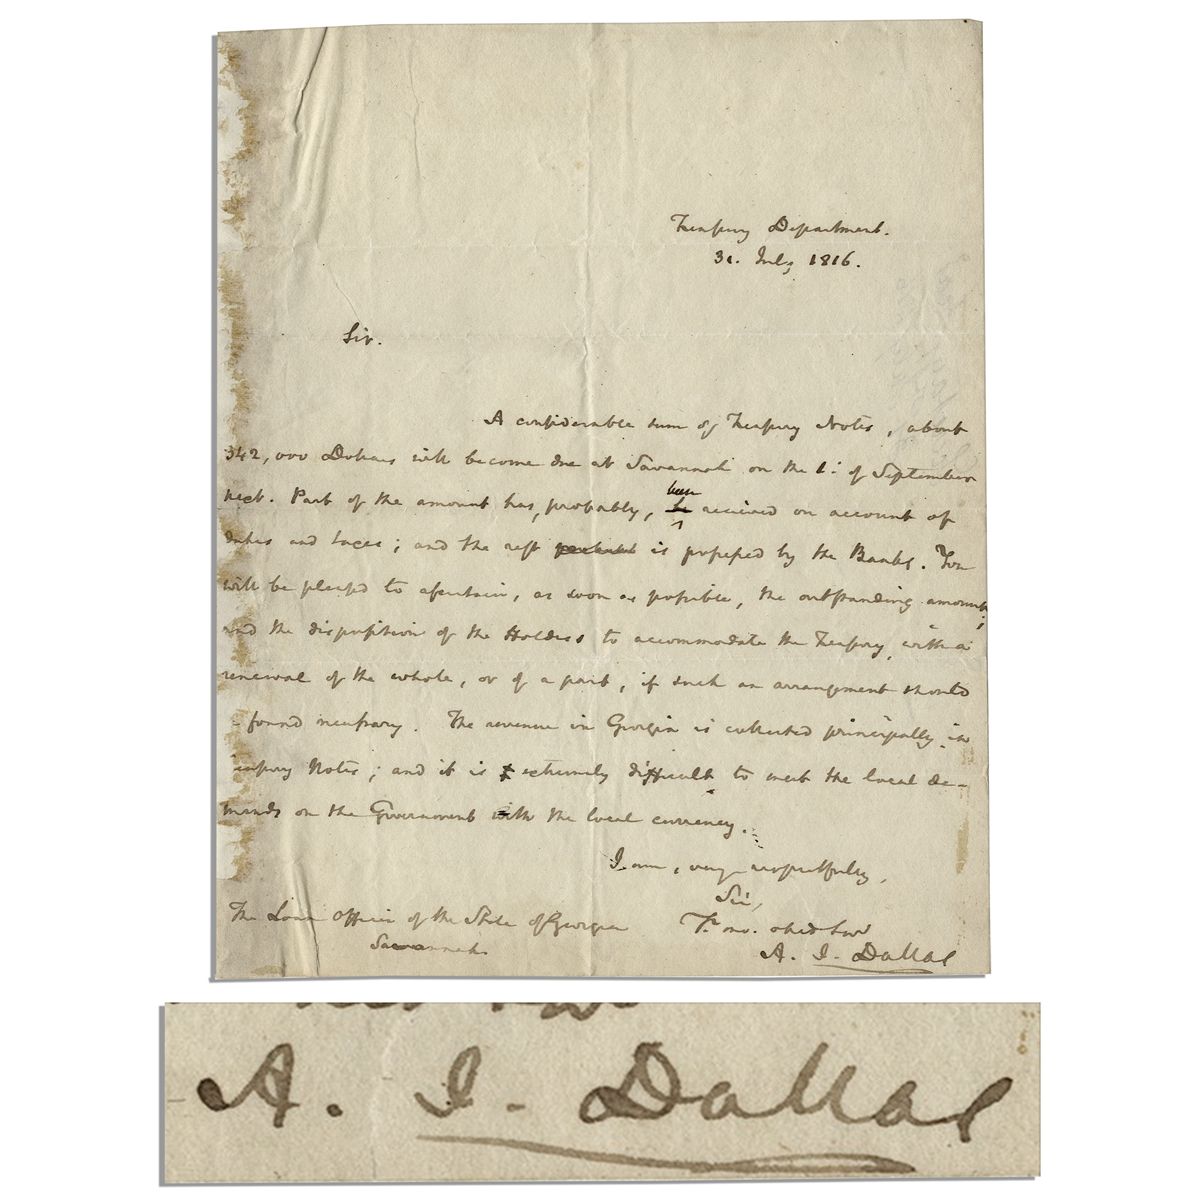 Treasury Department.
31. July 1816.
Sir.
A considerable sum of Treasury Notes, about
342,000 Dollars will become due at Savannah on the 1: of September
next. Part of the amount has, probably, been received on account of
duties and taxes; and the rest is possessed by the Banks. You
will be pleased to ascertain, as soon as possible, the outstanding amount;
and the disposition of the Holders to accommodate the Treasury, with a
renewal of the whole, or of a part, if such an arrangement should
found necessary. The revenue in Georgia is collected principally in
Notes; and it is extremely difficult to meet the local de-
mands on the Government with the local currency.
I am, very respectfully,
Sir,
Obed Serv
The Loan Officer of the State of Georgia
Savannah.
A. I. Dallas
A. I. Dallas